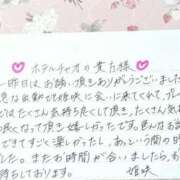 ホテルキャオの貴方様
一昨日はお誘い頂きありがとうございました
急な出勤でも姫咲に会いに来てくれて
ではたくさん気持ち良くして頂き、たくさん気
良くなって頂き嬉しかったです。色んなお話
できすごく楽しかったし、あという間の時
した。またお時間が合いましたら、お
待ちしております。
姫咲